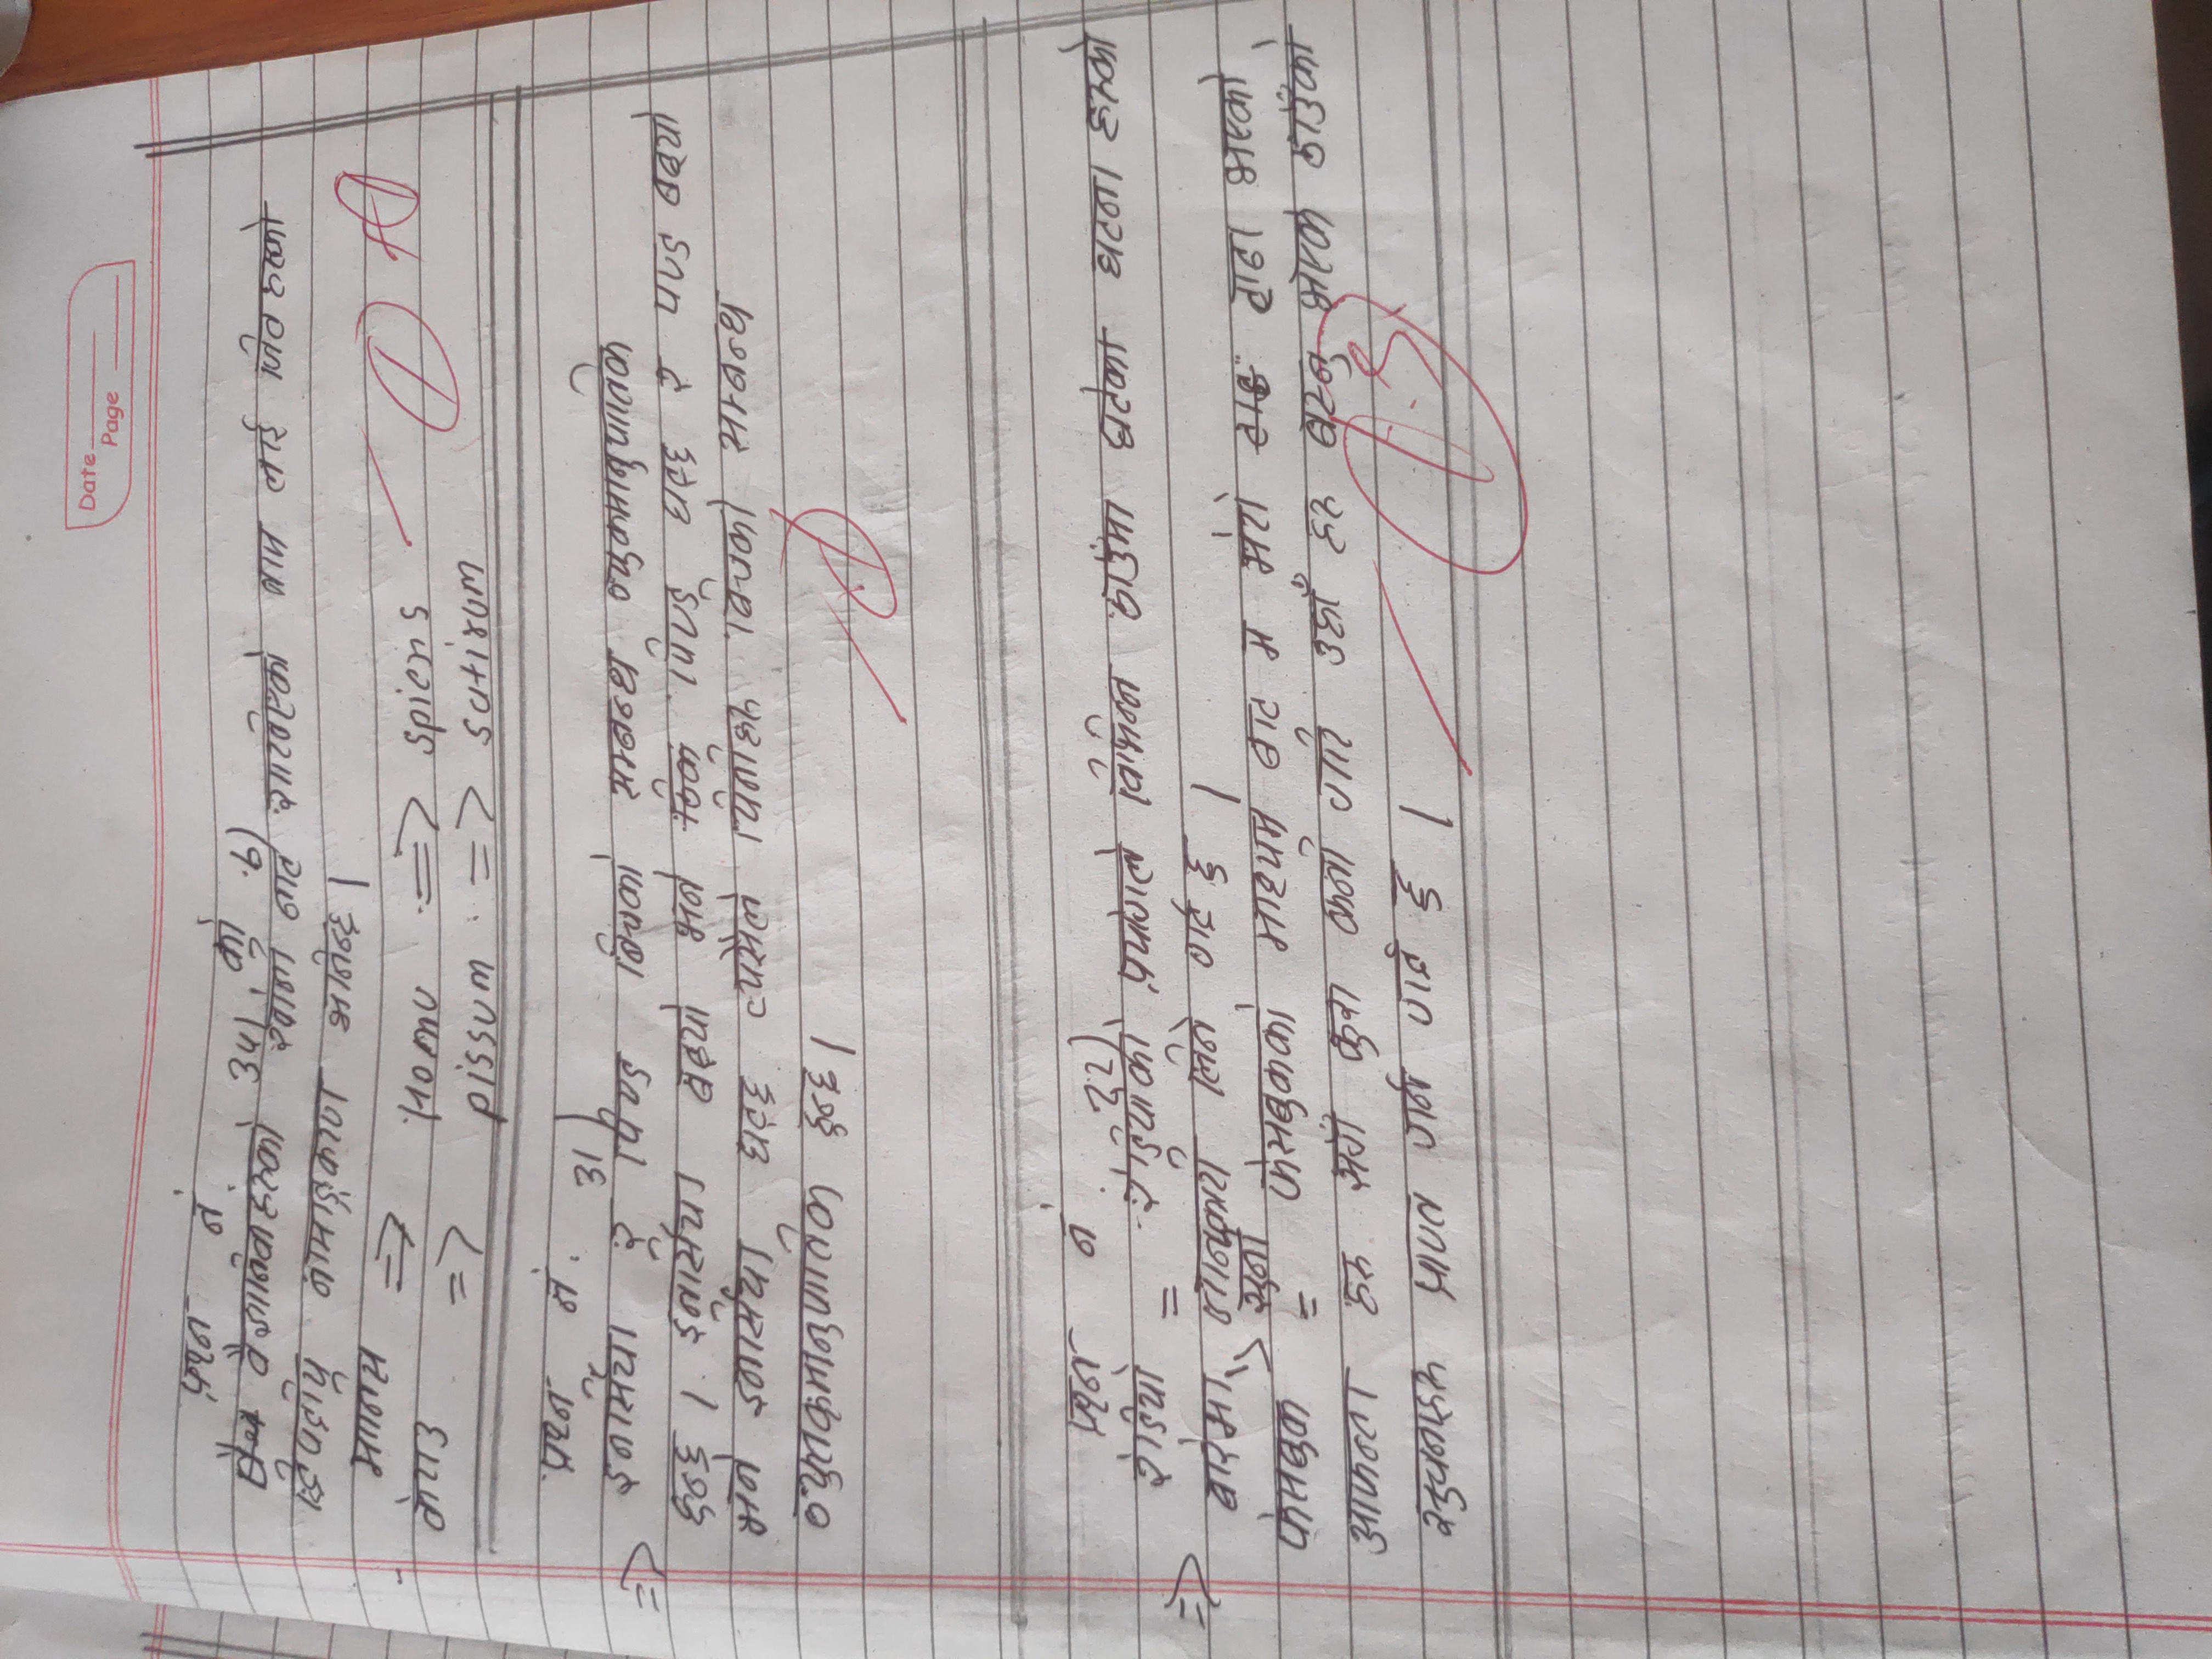 Date
Page
प्रश्न नं. 34) को b)
वैज्ञानिकहरुको खोजी बाट राखिएको नाम लाई जिव हरुको
द्विपदीय नामाङ्करण भनिन्छ।
मानिस => Homo => spiens
केराउ => pissum => sutirum
1
प्रश्न नं. 31)
=> इनर्सिया र पिण्ड बिचको सम्बन्ध व्युक्मानुपातिक
हुन्छ। इनर्सिया बढ्यो भने पिण्ड घट्छ र पण्ड बढ्यो
भने इनर्सिया घट्छ त्यसैले यिनीहरु बिचको सम्बन्ध
व्युतक्रमानुपातिक हुन्छ।
1
प्रश्न नं. 22)
=> रेडियो = रेडियोको प्रयोगले विभिन्न ठाउँमा घटेका घटना हरुको
बारेमा जानकारी लिने गर्दछु।
सुनी
फेसबुक = फेसबुकको माध्यम बाट म मेरो टाढा भएको
आफन्ता हरु सगँ कुरा कानी गरि उहाँ हरु बस्नु भएको ठाउँको
सुचनाहरु प्राप्त गर्न गर्दछु।
1.5